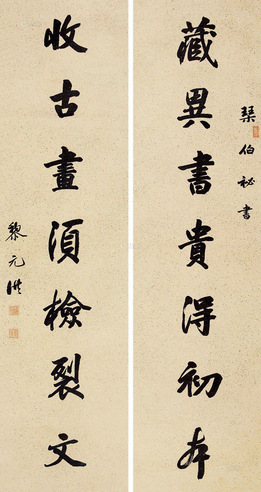 琹伯秘書
藏異書貴得初本
收古畫須檢裂文
黎元洪